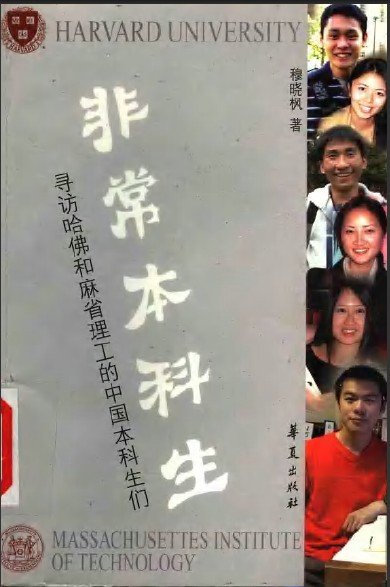 HARVARD UNIVERSITY
穆晓枫 著
非常本科生
寻访哈佛和麻省理工的中国本科生们
华夏出版社
MASSACHUSETTES INSTITUTE
OF TECHNOLOGY